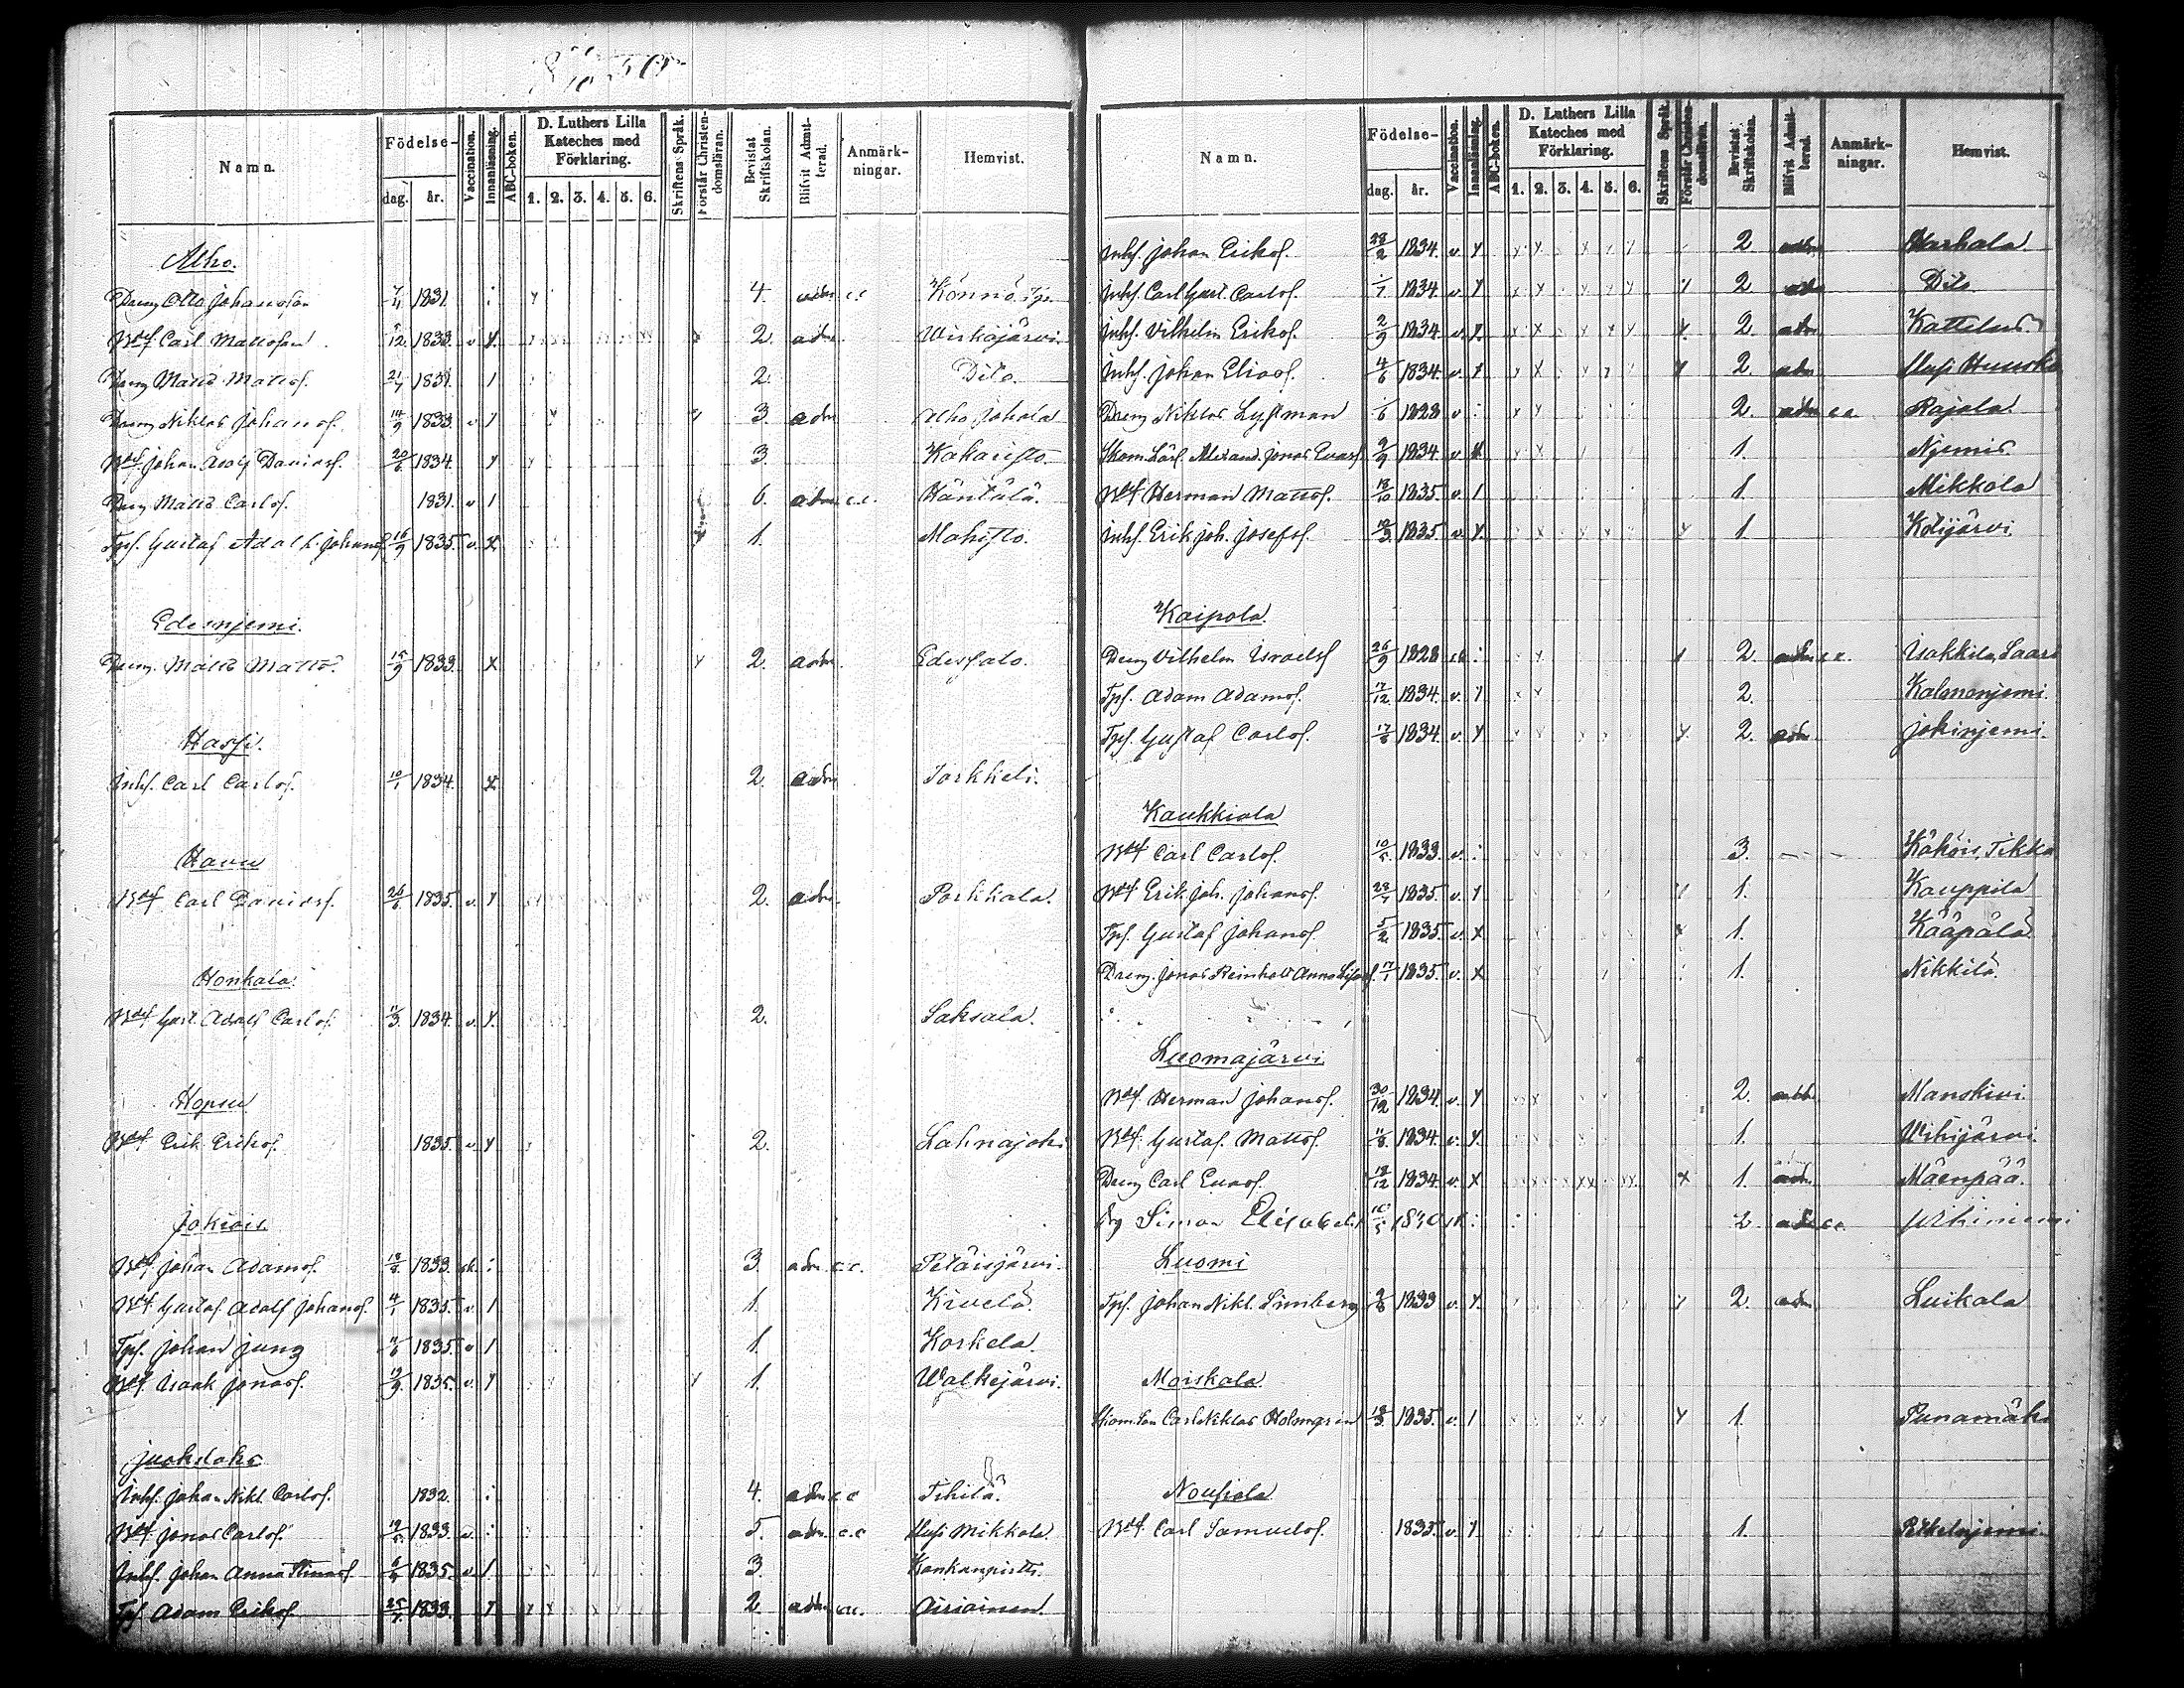 Namn. Födelse- dag. år. Vaccination. Innanläsning. ABC-boken. D. Luthers Lilla Kateches med Förklaring. 1. 2. 3. 4. 5. 6. Skriftens Språk. Förstår Christendomsläran. Bevistat Skriftskolan. Blifvit Admitterad. Anmärkningar. Hemvist.
Alho.
Dreng Otto Johansson 1831. 4. adm c.c. Könnö
Carl Mattsson 1833. v 2. adm Wirkäjärvi.
Dreng Matts Mattss. 21/7 1831. 2. Dito.
Dreng Niklas Johanss. 14/9 1833. v 3. adm Alho Johala
Johan Adolf Daniels. 20/6 1834. 3. Kakaristo
Dreng Matts Carlss. 1831. v 6. adm c.c. Häntälä.
Tps. Gustaf Adolf Johanss. 16/9 1835. v. 1. Mahisto.
Edesnjemi.
Dreng. Matts Matts. 15/9 1833. x 2. adm. Edessalo.
Hassi.
Inhs. Carl Carlss. 10/1 1834. x 2. adm Torkkeli.
Havu
Carl Daniels. 26/6 1835. v. 2. adm. Porkkala.
Honkala.
Gust. Adolf Carlss. 11/3 1834. v. 2. Saksala.
Hopsu
Erik Erikss. 1835. v. 2. Lahnajoki
Jokiois.
Johan Adamss. 18/8 1833. 3. adm c.c. Petäisjärvi.
Gustaf Adolf Johanss. 4/1 1835. v. 1. Kivelä
Tps. Johan Jung 1835. v 1. Korkela.
Isaak Jonass. 19/9 1835. v. 1. Walkejärvi.
Juokslaks
Inhs. Johan Nikl. Carlss. 1832. 4. adm c.c Tihilä.
Jonas Carlss. 1833. v. 5. adm. c.c Uusi Mikkola.
Inhs. Johan Anna Stinass. 1835. v 3. Kankanpirtti.
Tps. Adam Erikss. 25/7 1833. 2. adm c.c. Airiainen.
Namn. Födelse- dag. år. Vaccination. Innanläsning. ABC-boken. D. Luthers Lilla Kateches med Förklaring. 1. 2. 3. 4. 5. 6. Skriftens Språk. Förstår Christendomsläran. Bevistat Skriftskolan. Blifvit Admitterad. Anmärkningar. Hemvist.
Inhs. Johan Erikss. 28/2 1834. v. 2 adm Harhala
Inhs. Carl Gust. Carlss. 1834. v. 2. adm Dito.
Inhs. Vilhelm Erikss. 2/9 1834. v. 2. adm Kattelus
Inhs. Johan Eliass. 4/6 1834. v. 2. adm Uusi Huuska
Dreng Niklas Lystman 1828 v 2. adm c.c. Rajala.
Alexand. Jonas Evass. 9/9 1834 v. 1. Njemis.
Herman Mattss. 18/10 1835. v. 1. Mikkola
Inhs. Erik Joh. Josefss. 19/3 1835 v. 1. Kotijärvi.
Kaipola.
Dreng Vilhelm Israelss 26/9 1828 2. adm c.c. Isakkila, Saari
Tps. Adam Adamss. 17/12 1834. v. 2. Kalmonjemi.
Tps. Gustaf Carlss. 17/6 1834. v. 2. adm Jokinjemi.
Kaukkiala
Carl Carlss. 10/5 1833. v. 3. Kähöis, Tikka
Erik Joh. Johanss. 1835. v. 1. Kauppila
Tps. Gustaf Johanss. 5/2 1835. v. x 1. Kääpälä
Dreng. Jonas Reinhold Anna Lisass. 17/1 1835. v. x 1. Nikkilä.
Luomajärvi
Herman Johanss. 30/12 1834. v. 2. adm. Manskivi.
Gustaf Mattss. 11/8 1834. v. 1. Wihijärvi.
Dreng Carl Evass. 18/12 1834. v. x 1. adm. Mäenpää.
Drg Simon Elisabet. 2 adm c.c. Wihiniemi
Luomi
Tps. Johan Nikl. Simberg 9/8 1833 v. 2. adm Luikala
Moiskala
Carl Niklas Holmgren 18/3 1835. v. 1 Punamäki
Nousiala
Carl Samuelss. 1835. v 1. Pätkelnjemi